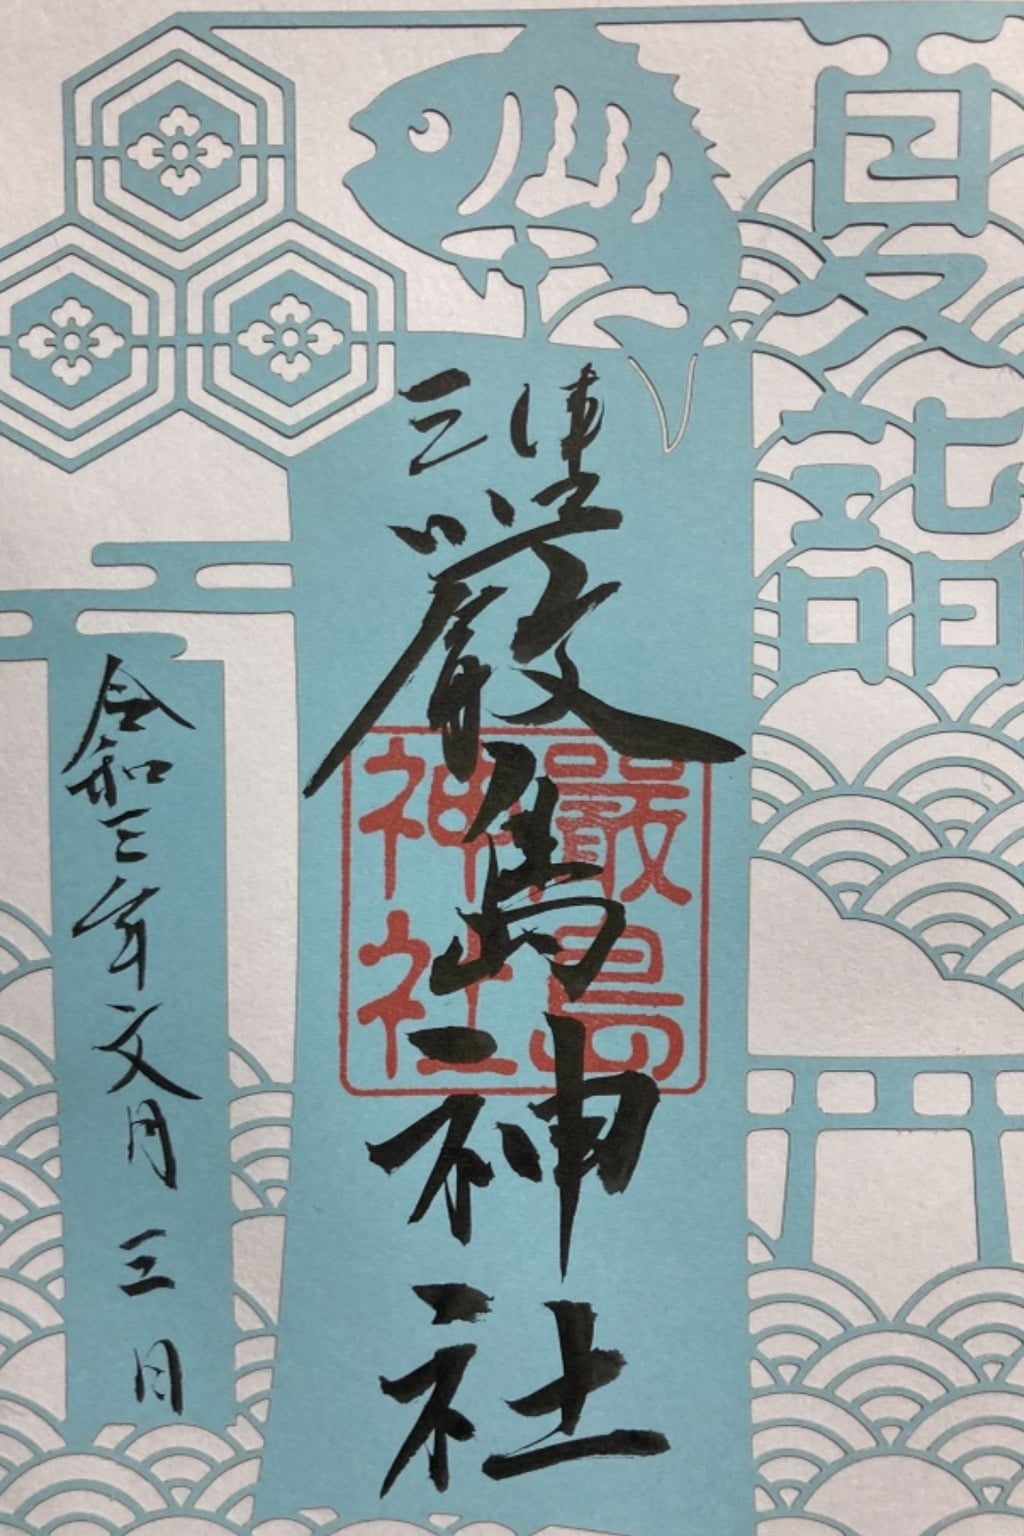 夏詣
三津
嚴島神社
嚴島
神社
令和三年文月三日